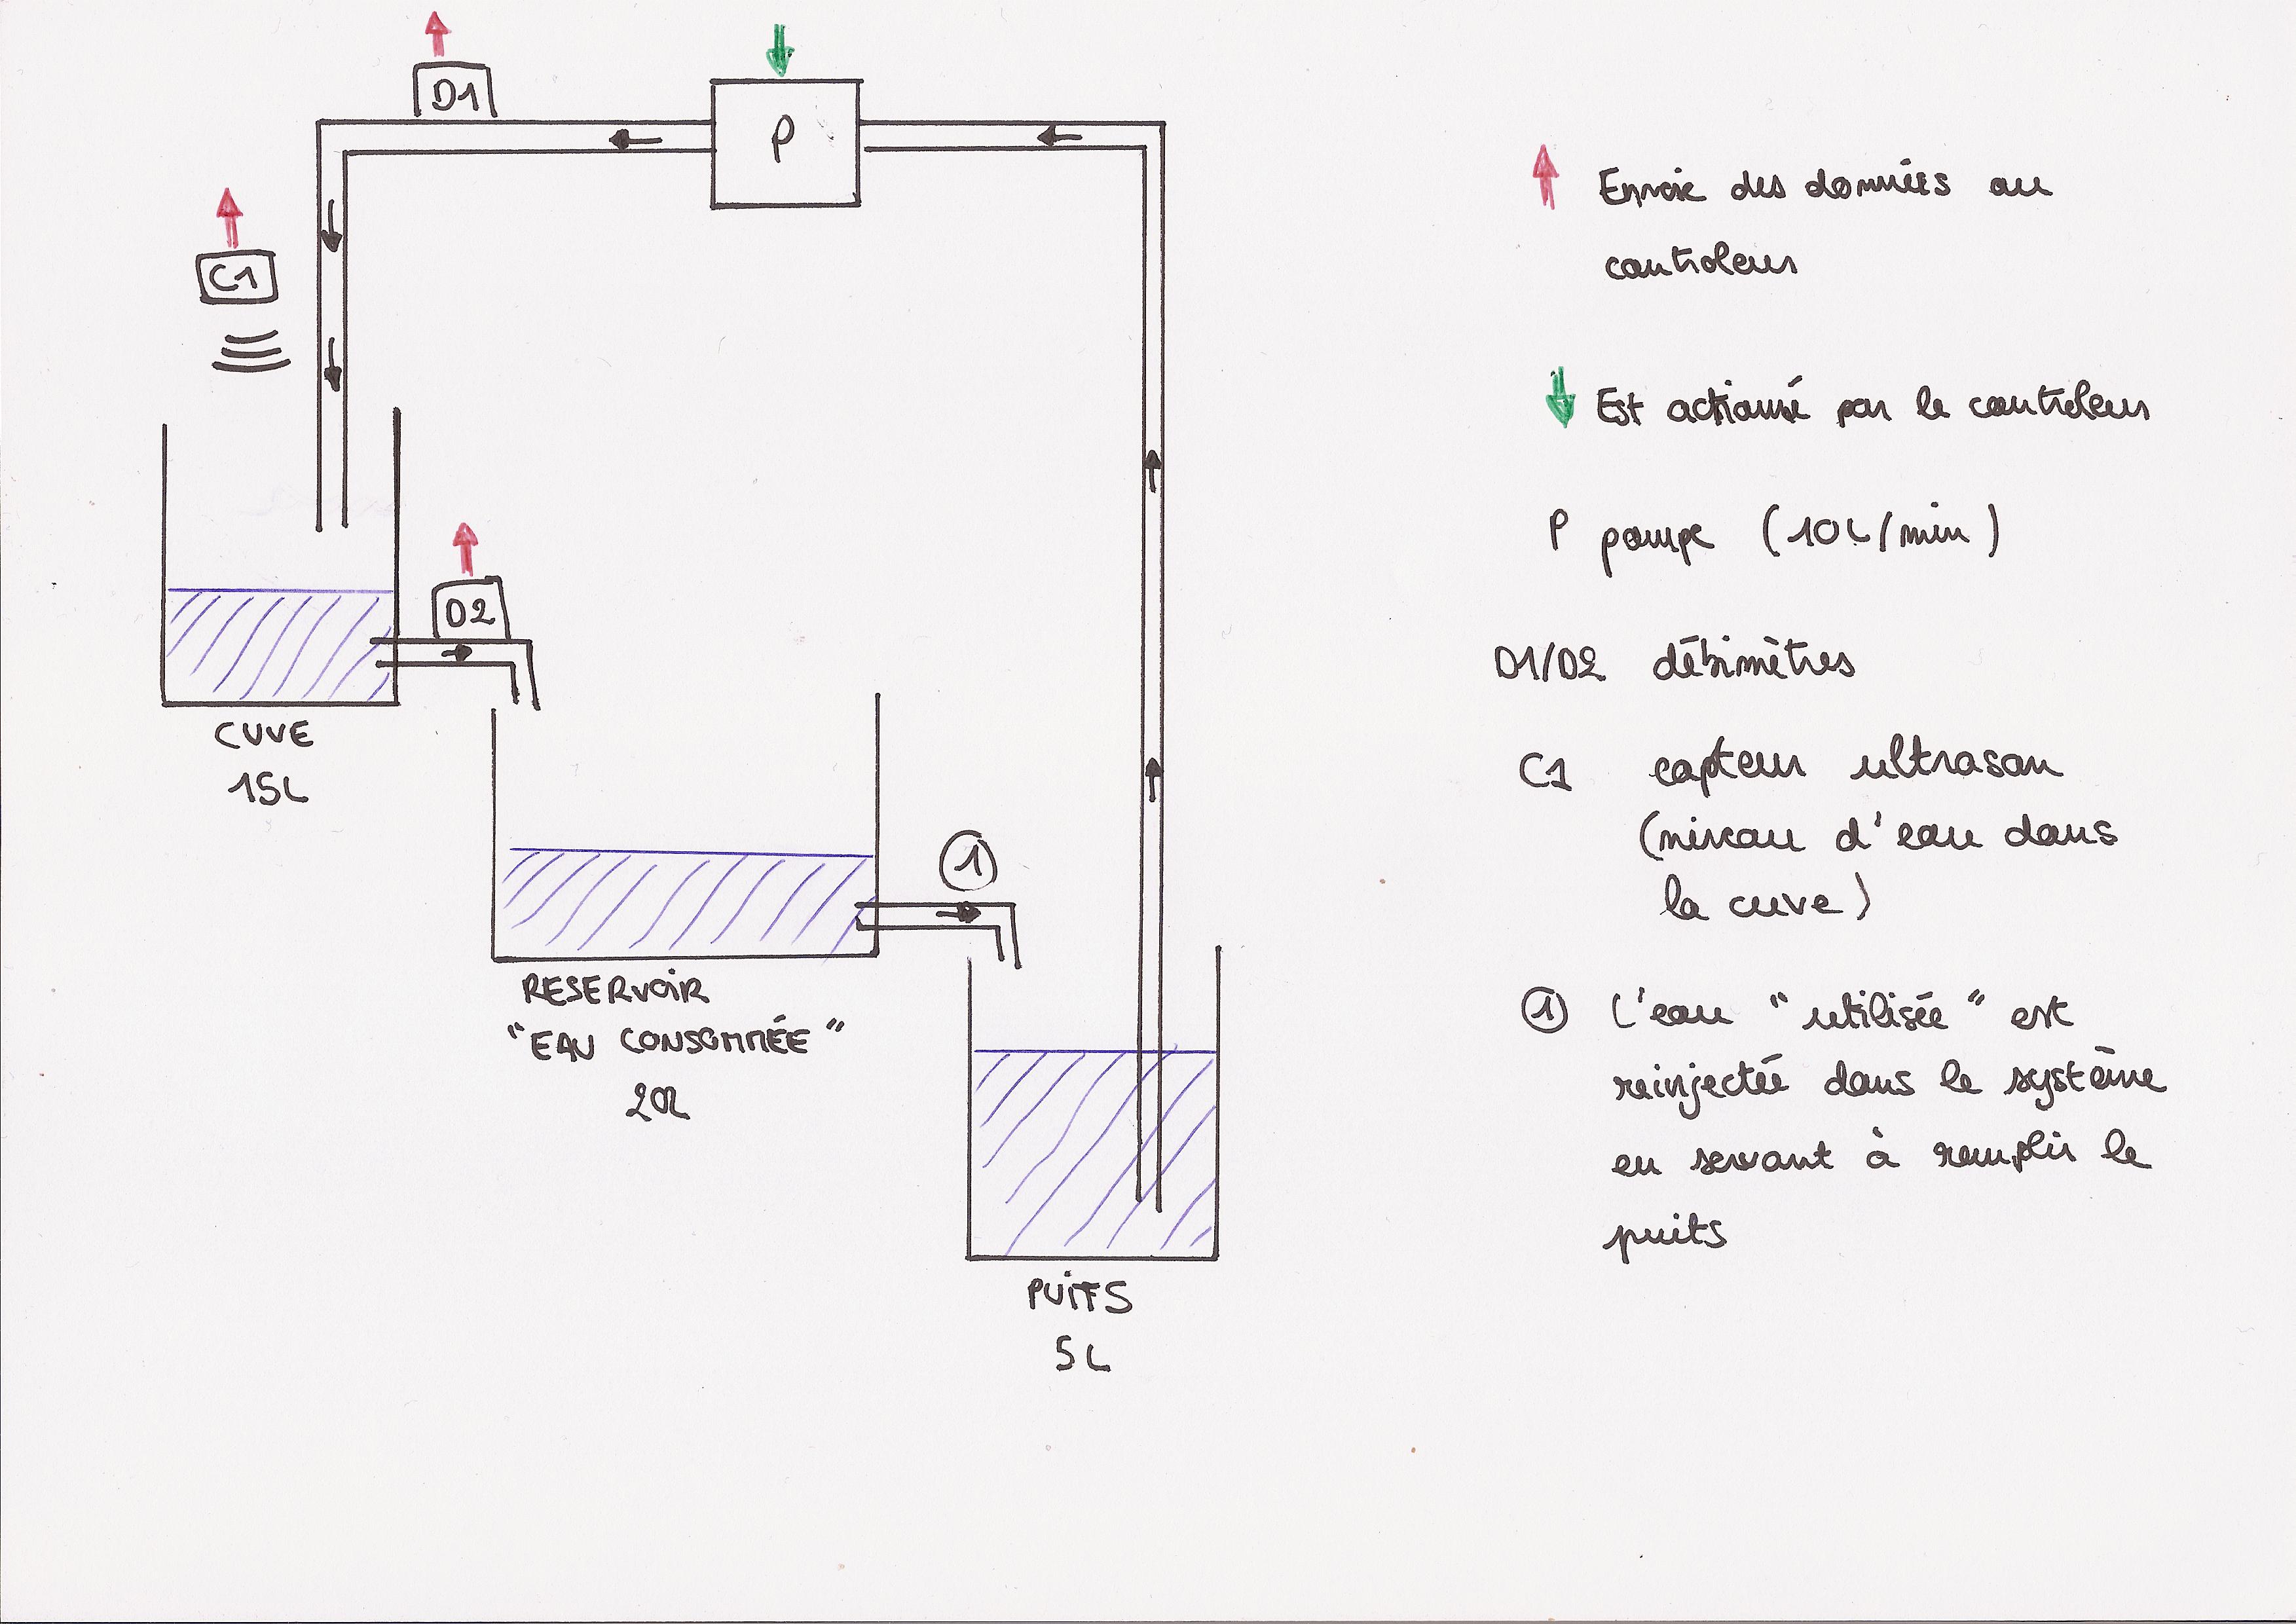 D1
P
C1
D2
CUVE
15L
1
RESERVOIR
"EAU CONSOMMÉE"
20L
PUITS
5L
Envoie des données au
controleur
Est actionné par le controleur
P pompe (10L/min)
D1/D2 débimètres
C1 capteur ultrason
(niveau d'eau dans
la cuve)
1 L'eau "utilisée" est
reinjectée dans le système
en servant à remplir le
puits